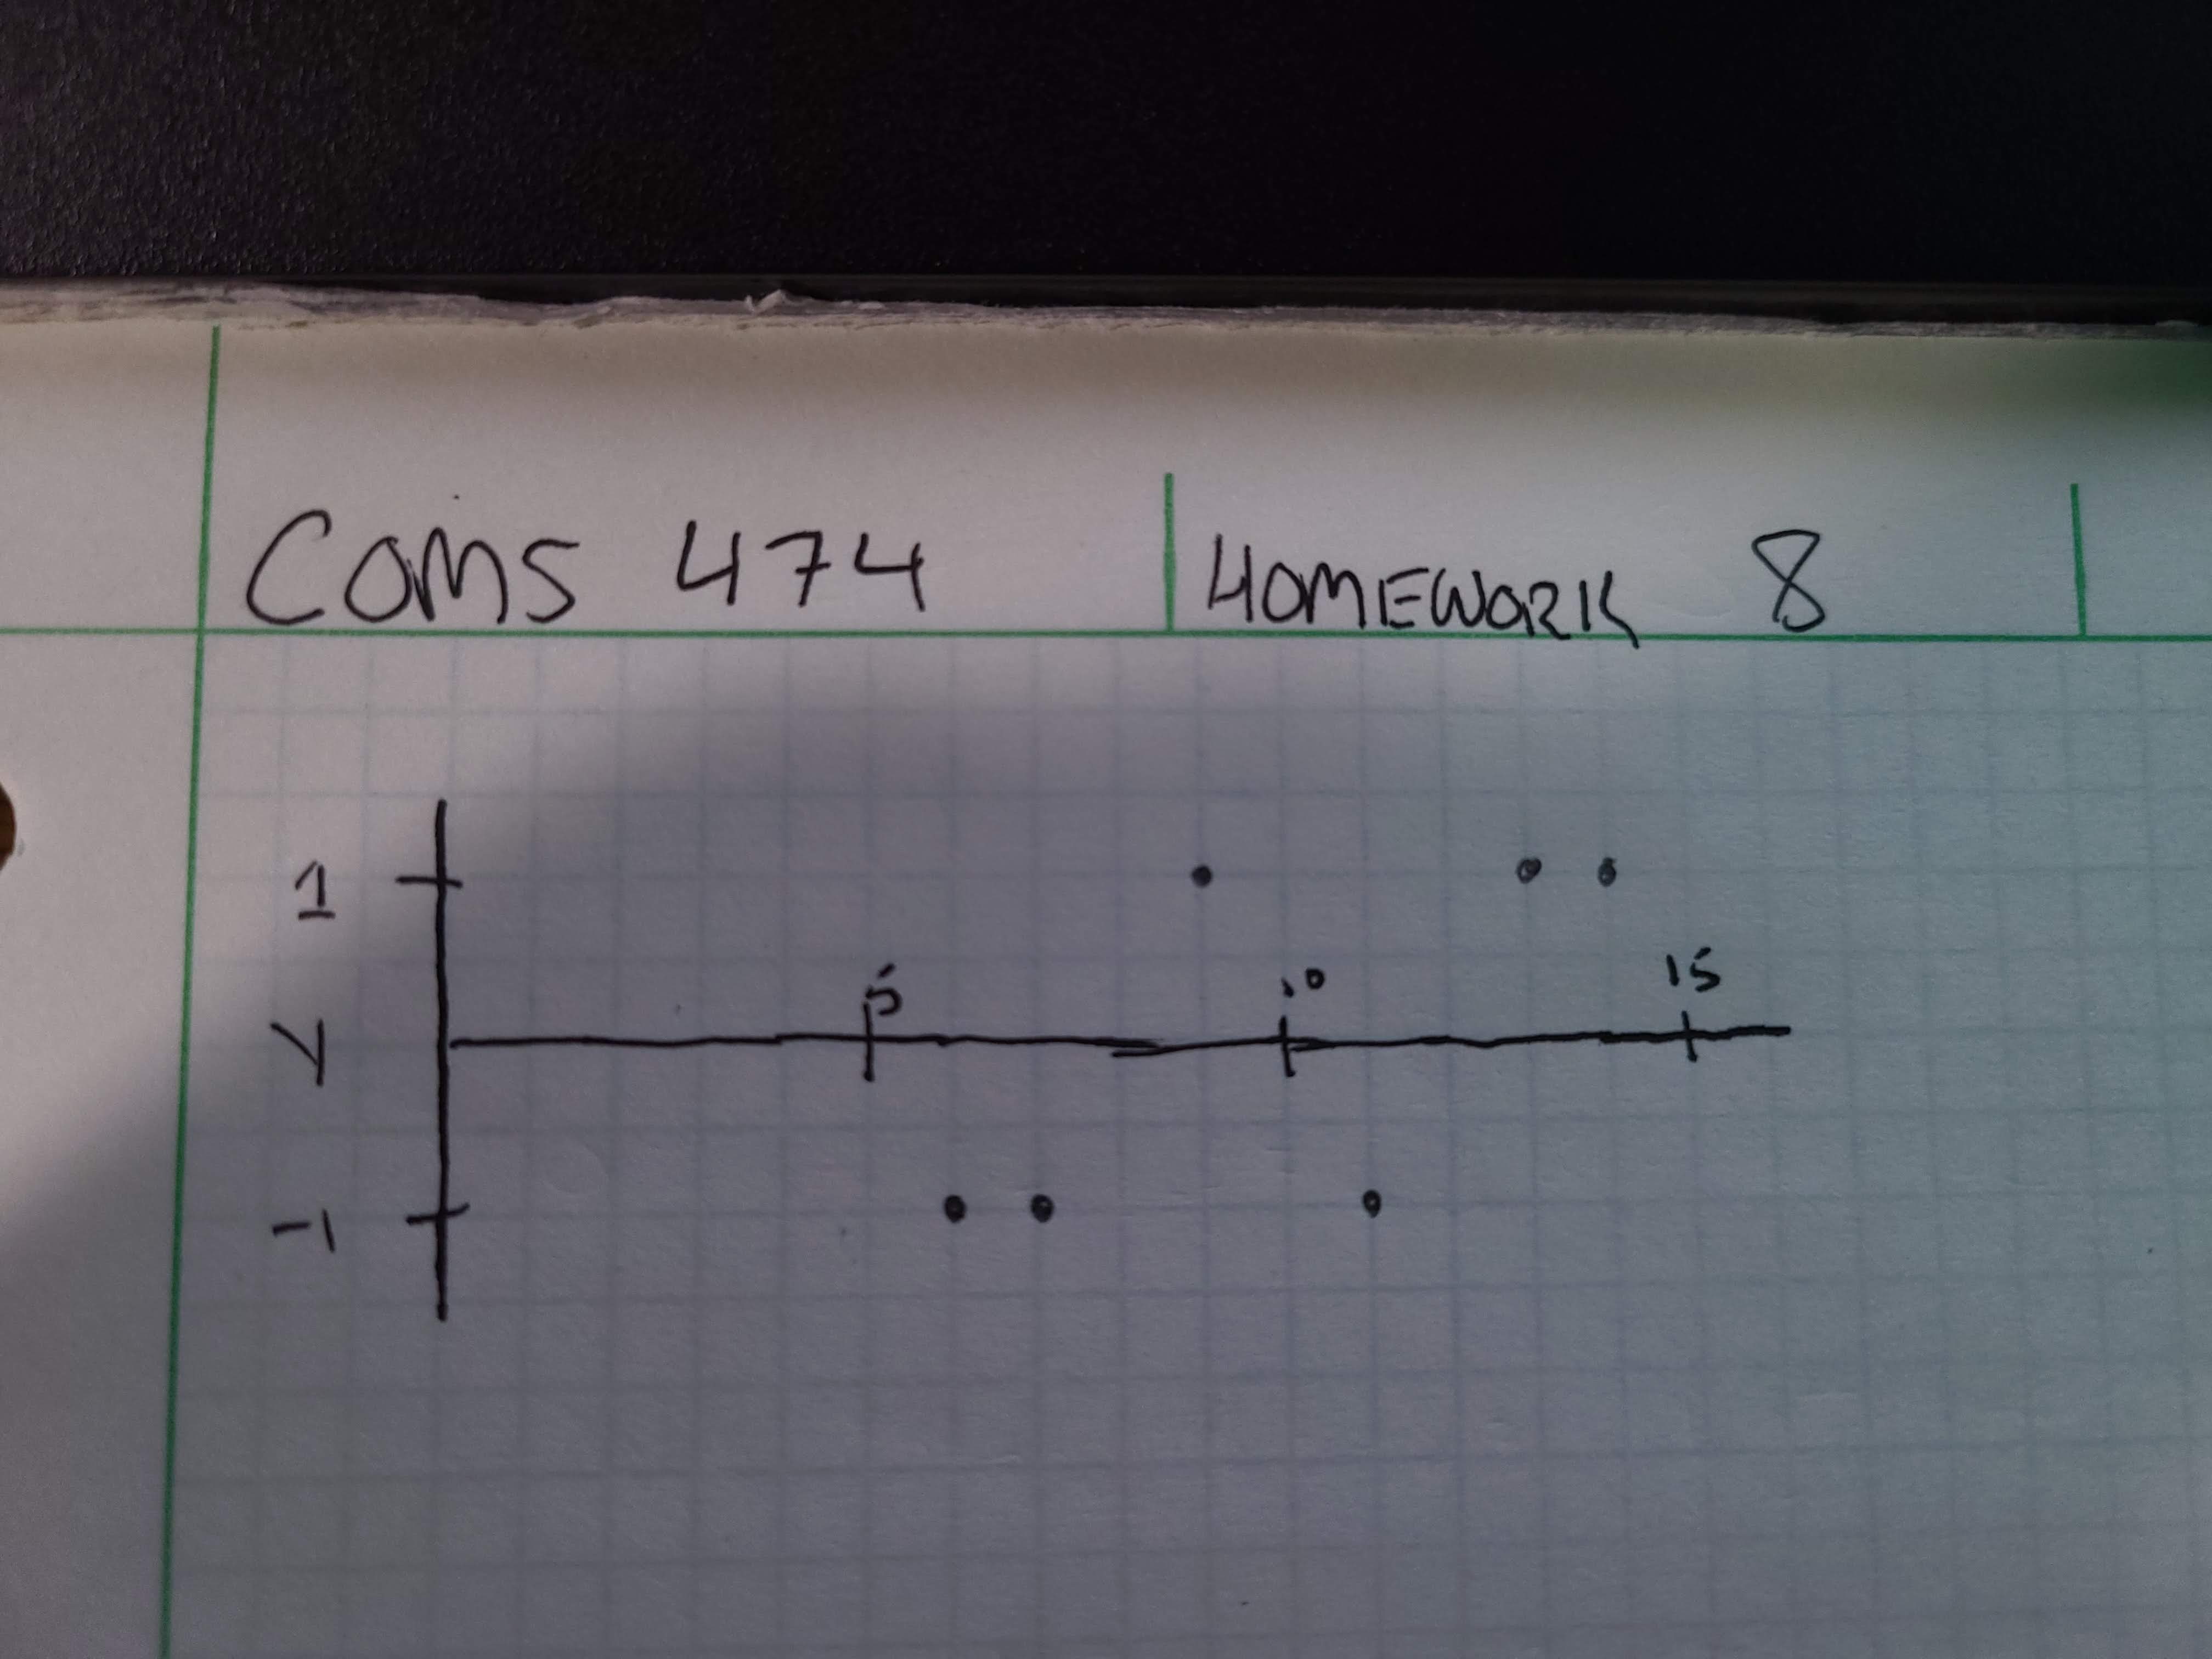 Coms 474
HOMEWORK 8
1
5
10
15
Y
-1